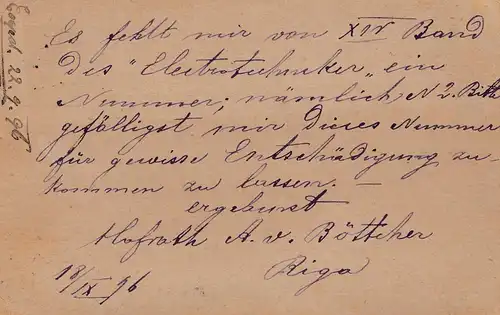 Es fehlt mir von XIV Band
des "Electrotechniker" ein
Nummer; nämlich N 2. Bitte
gefälligst mir dieses Nummer
für gewisse Entschädigung zu-
kommen zu lassen. —
ergebenst
Hofrath A. v. Böttcher
Riga
18/IX 96
22 9 96